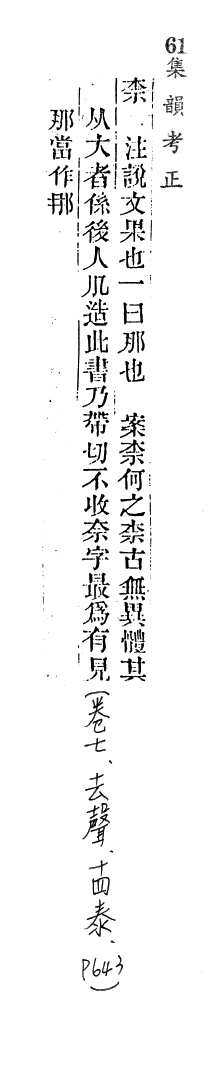 61集韻考正
柰 注說文果也一曰那也 案柰何之柰古無異體其
从大者係後人肊造此書乃帶切不收奈字最爲有見
那當作𨙻
(卷七、去聲、十四泰、P643)